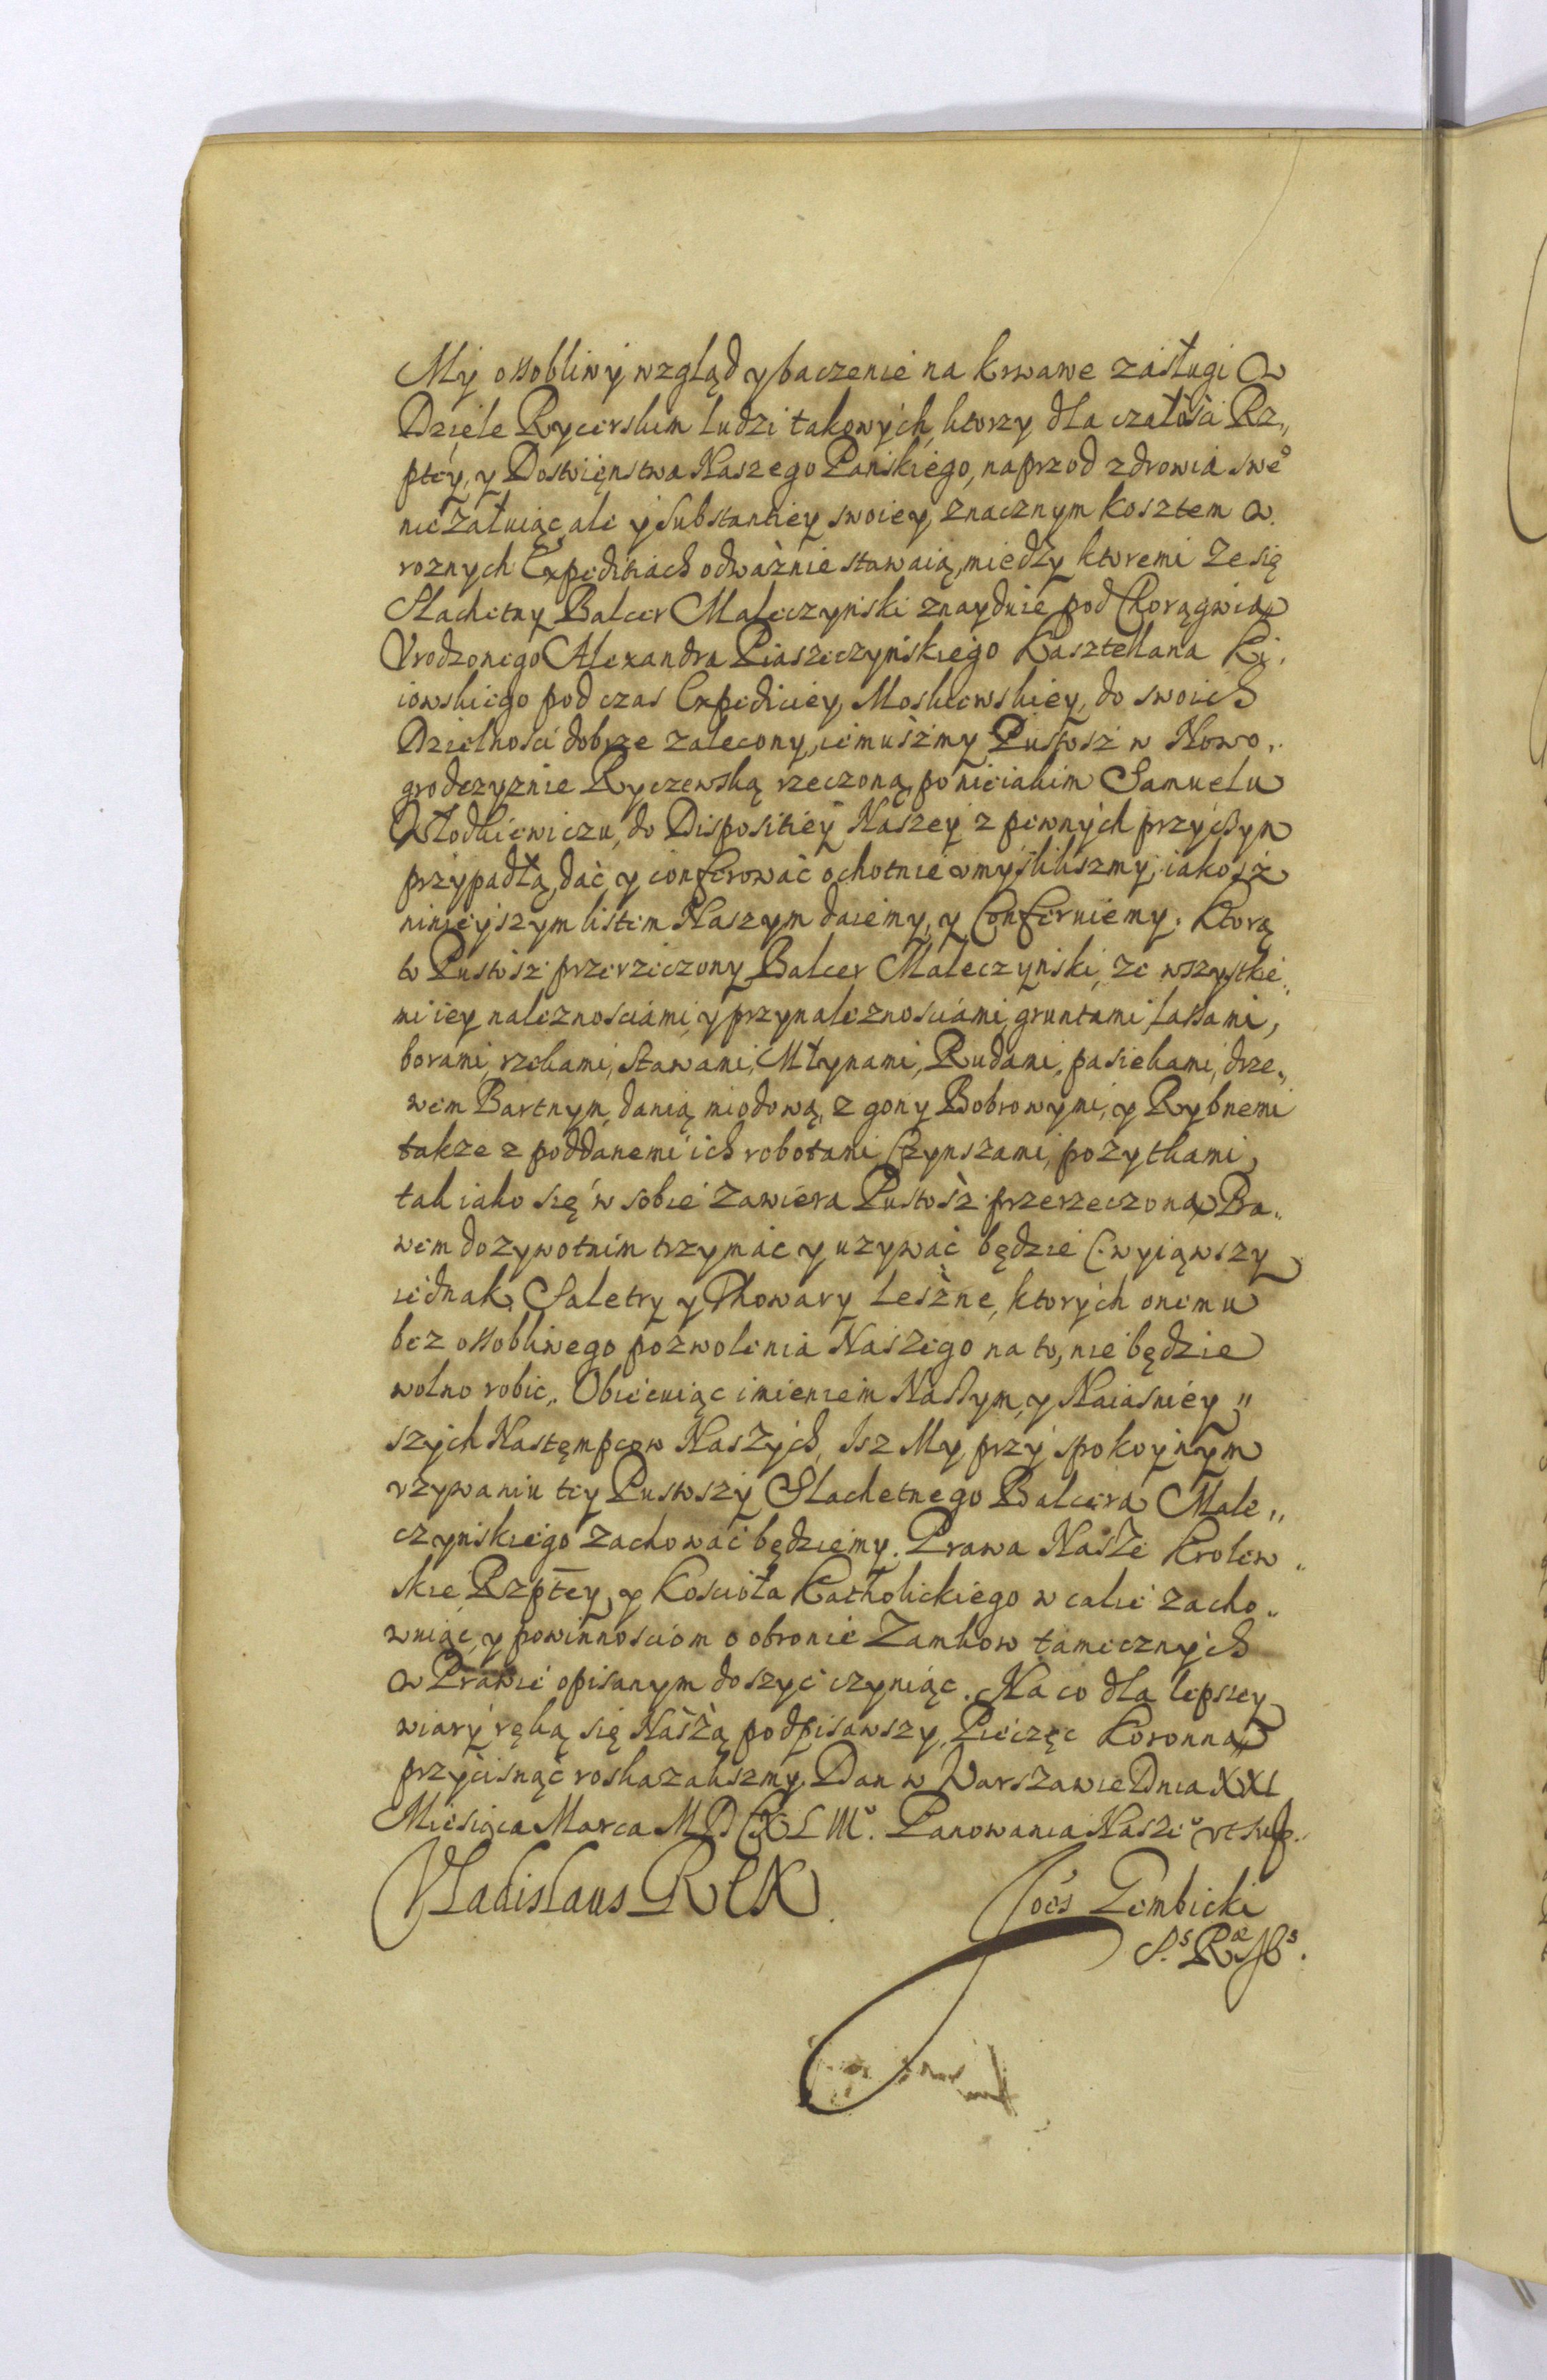 My ossobliwy wzgląd y baczenie na krwawe zasługi w
Dziele Rycerskim ludzi takowych, ktorzy dla czałości Rz„
ptey, y Dostoięnstwa Naszego Pańskiego, naprzod zdrowia swe°
nie załuiąc, ale y Substantiey swoiey, znacznym kosztem w
roznych Expeditiach odważnie stawaią, miedzy ktoremi ze się
Slachetny Balcer Maleczyński znayduie pod Chorągwią
Vrodzonego Alexandra Piaseczyńskiego Kasztellana Ki„
iowskiego pod czas Expediciey Moskiewskiey, do swoich
Dzielnosci dobrze zalecony, iemuśzmy Pustosz w Nowo„
grodczyznie Ryczewską rzeczoną, po nieiakim Samuelu
Włodkiewiczu, do Dispositiey Naszey z pewnych przyczyn
przypadłą, dać y conferować ochotnie vmyśliliszmy, iakosz
ninieyszym listem Naszym daiemy, y Conferuiemy. Ktorą
to Pustosz przerzeczony Balcer Maleczyński, ze wszystkie„
mi iey naleznosciami, y przynaleznosciami, gruntami, lassami,
borami, rzekami, stawami, Młynami, Rudami, pasiekami, drze„
wem Bartnym, danią miodową, z gony Bobrowymi, y Rybnemi
takze z poddanemi ich robotami, Czynszami, pozytkami,
tak iako się w sobie zawiera Pustosz przerzeczona, Pra„
wem dozywotnim trzymać y uzywać będzie (: wyiąwszy
iednak, Saletry y Thowary Leśne, ktorych onemu
bez ossobliwego pozwolenia Naszego na to, nie będzie
wolno robic„ Obiecuiąc imieniem Naszym, y Naiasniey„
szych Następcow Naszych, Isz My przy spokoynym
vzywaniu tey Pustoszy Slachetnego Balcera Male„
czyńskiego zachować będziemy. Prawa Nasze Krolew„
skie Rzptey, y Kościoła Katholickiego w calie zacho„
wuiąc, y powinnosciom o obronie Zamkow tamecznych
w Prawie opisanym doszyć czyniąc. Na co dla lepszey
wiary ręką się Naszą podpisawszy, Pieczęc Koronną
przyćisnąć roskazaliszmy. Dan w Warszawie Dnia XXI
Miesiąca Marca MDCXLIII°. Panowania Nasze° vt sup.
Vladislaus REX.
Joes Gembicki
S.s Rae Mtis.